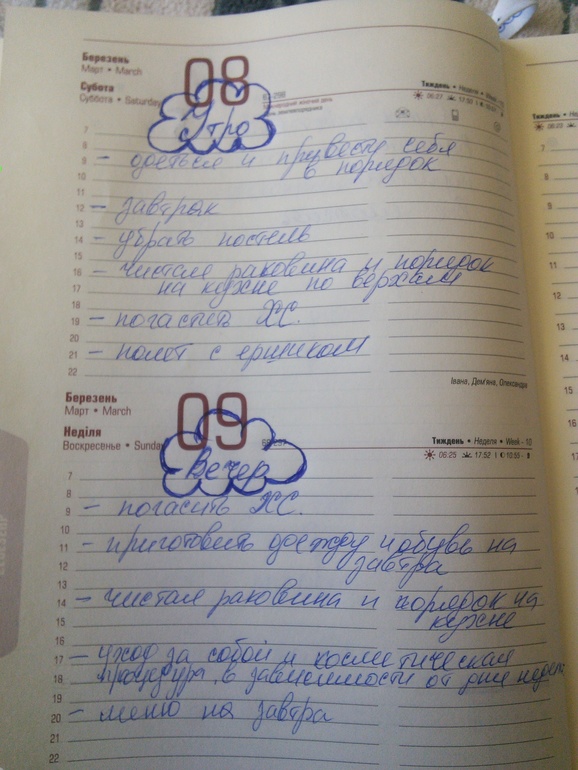 Березень
Март • March
08
Субота
Суббота • Saturday
Тиждень • Неделя • Week
06:27 17:50
Утро
7
8
9
- одеться и привести себя
в порядок
10
11
12
- завтрак
13
14
- убрать постель
15
16
- чистая раковина и порядок
17
на кухне по верхам
18
19
- погасить ХС.
20
21
- полет с ершиком
22
Івана, Дем'яна, Олександра
Березень
Март • March
09
Неділя
Воскресенье • Sunday
Тиждень • Неделя • Week - 10
06:25 17:52 10:55
Вечер
7
8
9
- погасить ХС.
10
11
- приготовить одежду и обувь на
12
завтра
13
14
- чистая раковина и порядок на
15
кухне
16
17
- уход за собой и косметическая
18
процедура, в зависимости от дня недели
19
20
- меню на завтра
21
22
Тиждень • Неделя
06:23
7
8
9
10
11
12